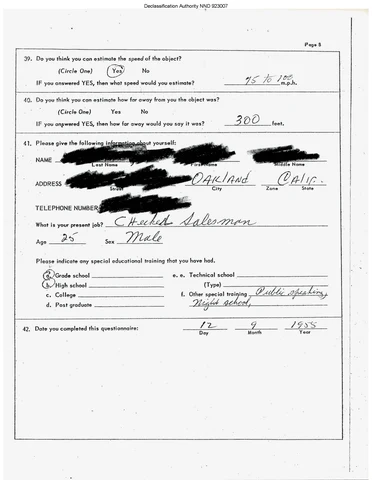 Declassification Authority NND 923007
Page 8
39. Do you think you can estimate the speed of the object?
(Circle One) Yes No
IF you answered YES, then what speed would you estimate? 75 to 100 m.p.h.
40. Do you think you can estimate how far away from you the object was?
(Circle One) Yes No
IF you answered YES, then how far away would you say it was? 300 feet.
41. Please give the following information about yourself:
NAME
Last Name First Name Middle Name
ADDRESS OAKLAND Calif.
Street City Zone State
TELEPHONE NUMBER
What is your present job? Salesman
Age 25 Sex Male
Please indicate any special educational training that you have had.
a. Grade school e. e. Technical school
b. High school (Type)
c. College f. Other special training Public speaking,
d. Post graduate Night school,
42. Date you completed this questionnaire: 12 9 1955
Day Month Year